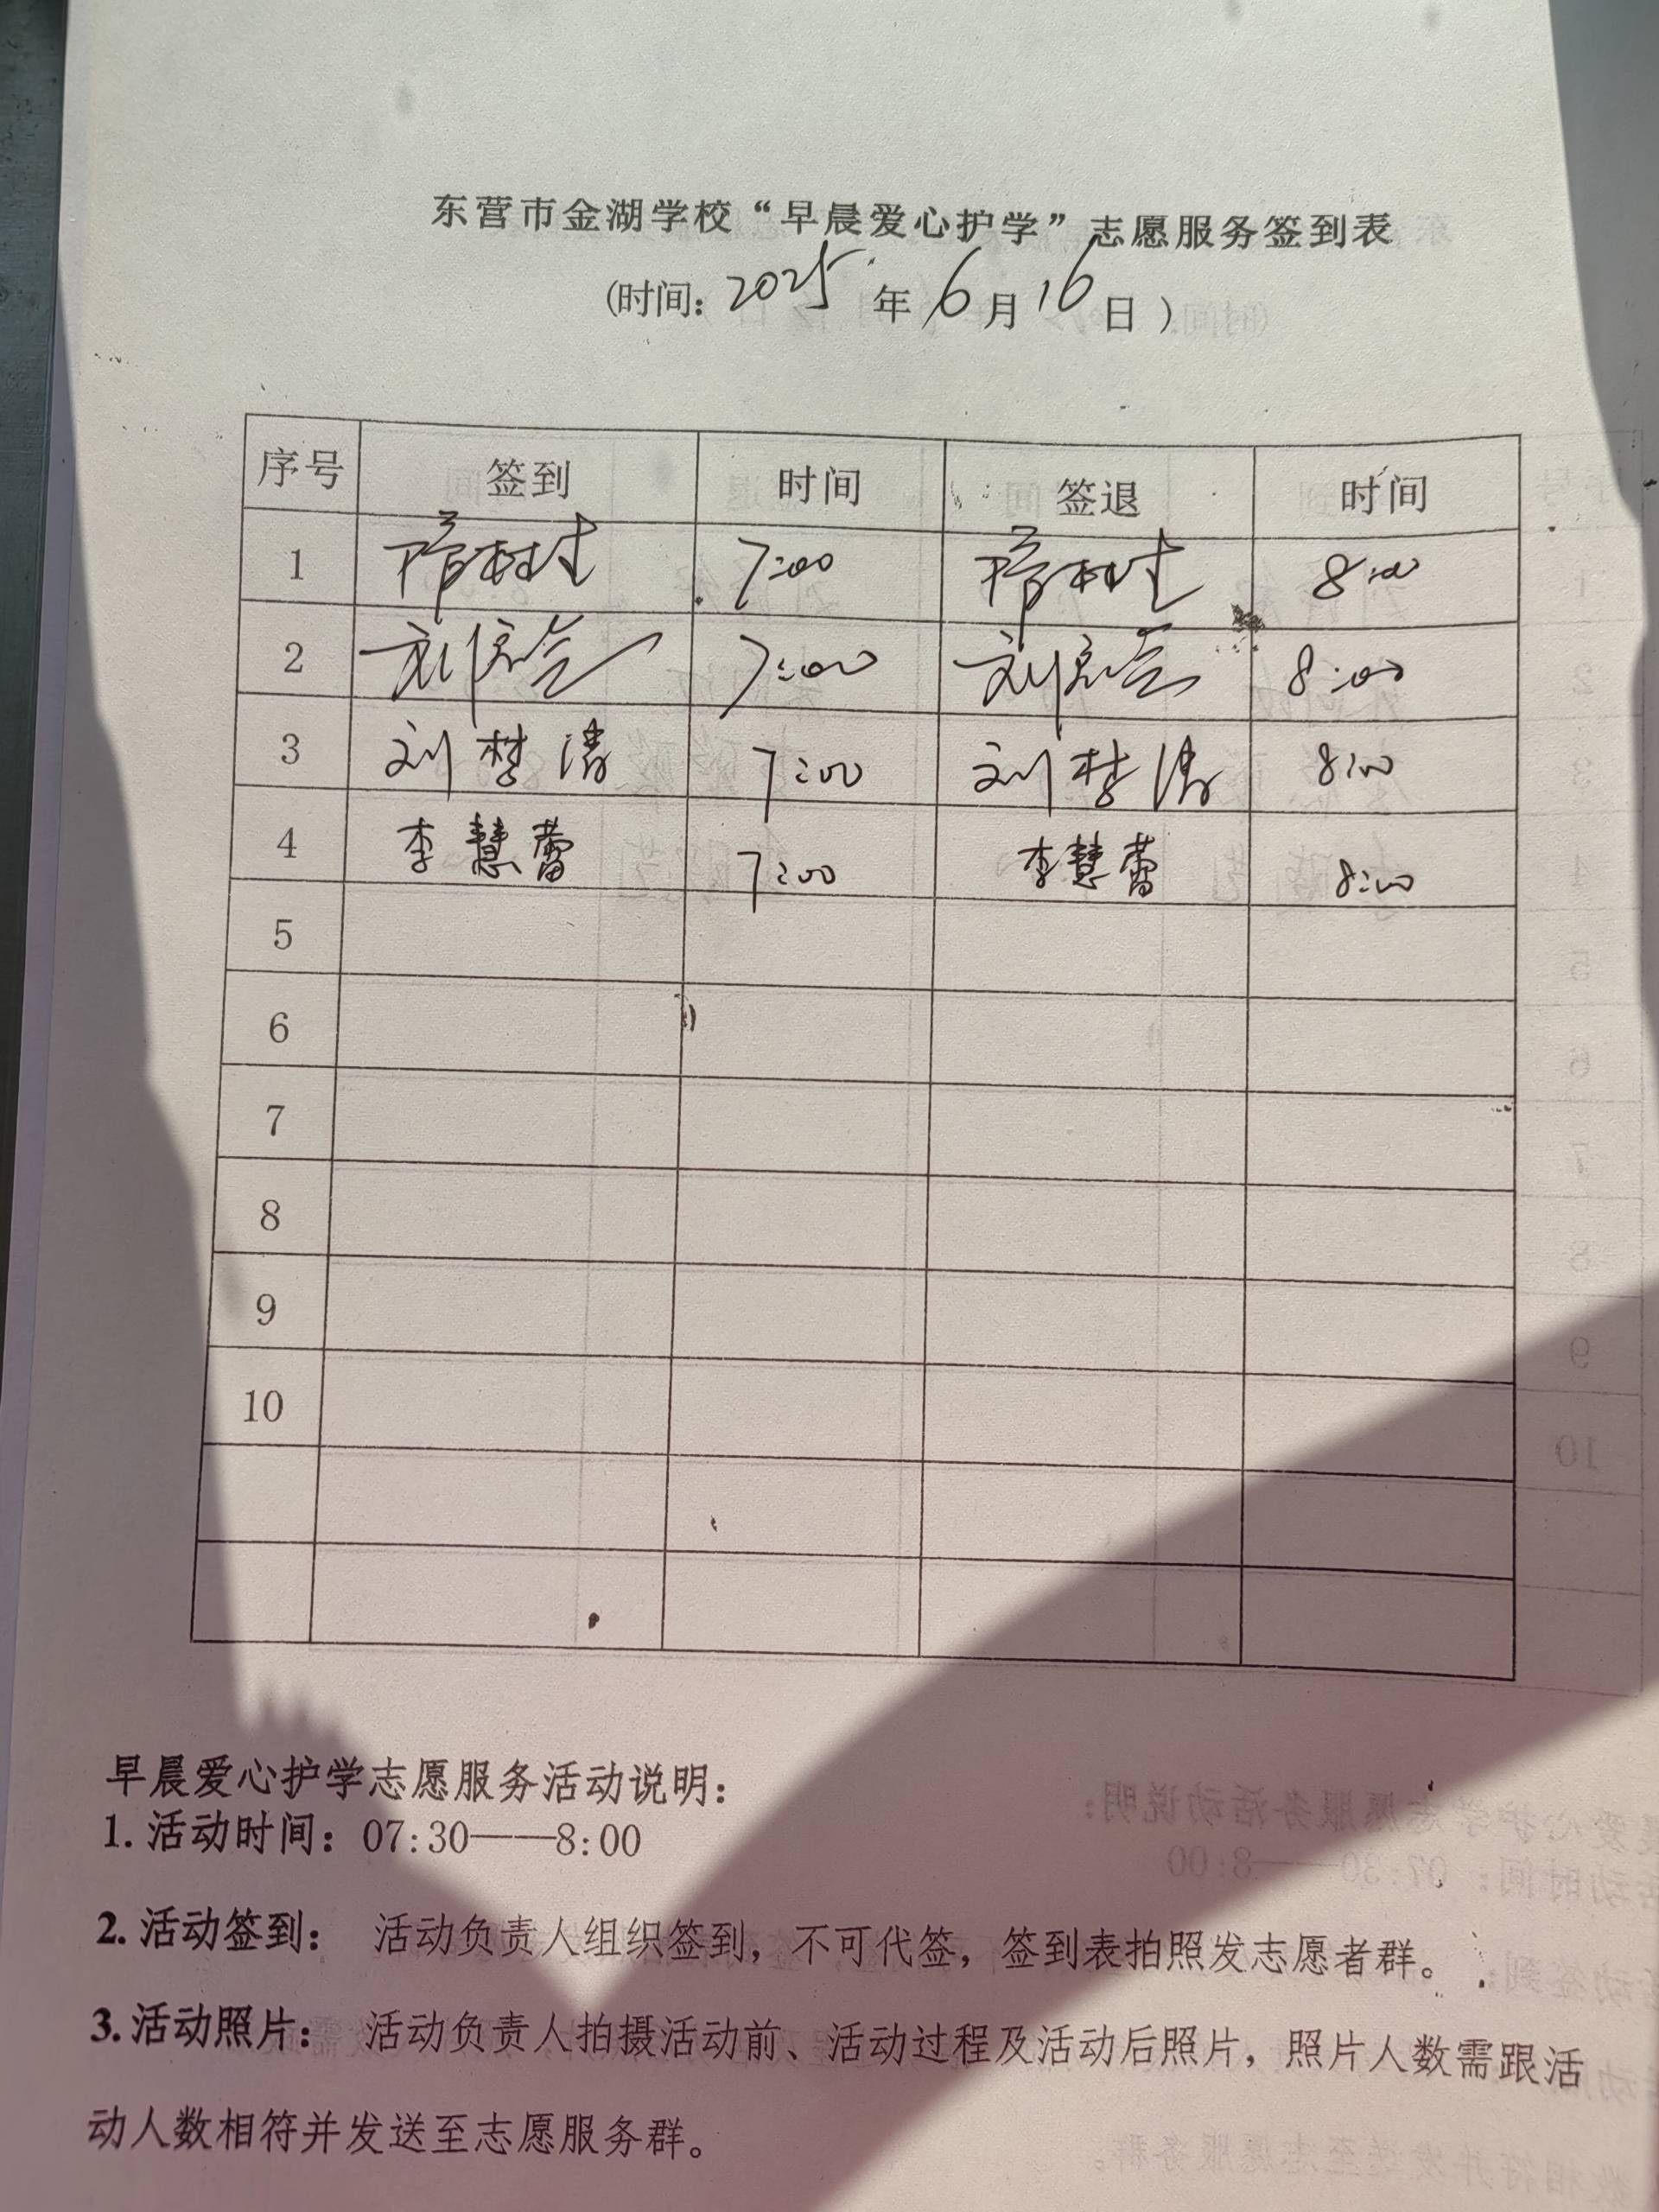 东营市金湖学校“早晨爱心护学”志愿服务签到表
(时间: 2025 年 6 月 16 日 )
序号 签到 时间 签退 时间
1 7:00 8:00
2 刘 7:00 刘 8:00
3 刘梦涛 7:00 刘梦涛 8:00
4 李慧蕾 7:00 李慧蕾 8:00
5
6
7
8
9
10
早晨爱心护学志愿服务活动说明:
1. 活动时间: 07:30——8:00
2. 活动签到: 活动负责人组织签到, 不可代签, 签到表拍照发志愿者群。
3. 活动照片: 活动负责人拍摄活动前、活动过程及活动后照片, 照片人数需跟活
动人数相符并发送至志愿服务群。